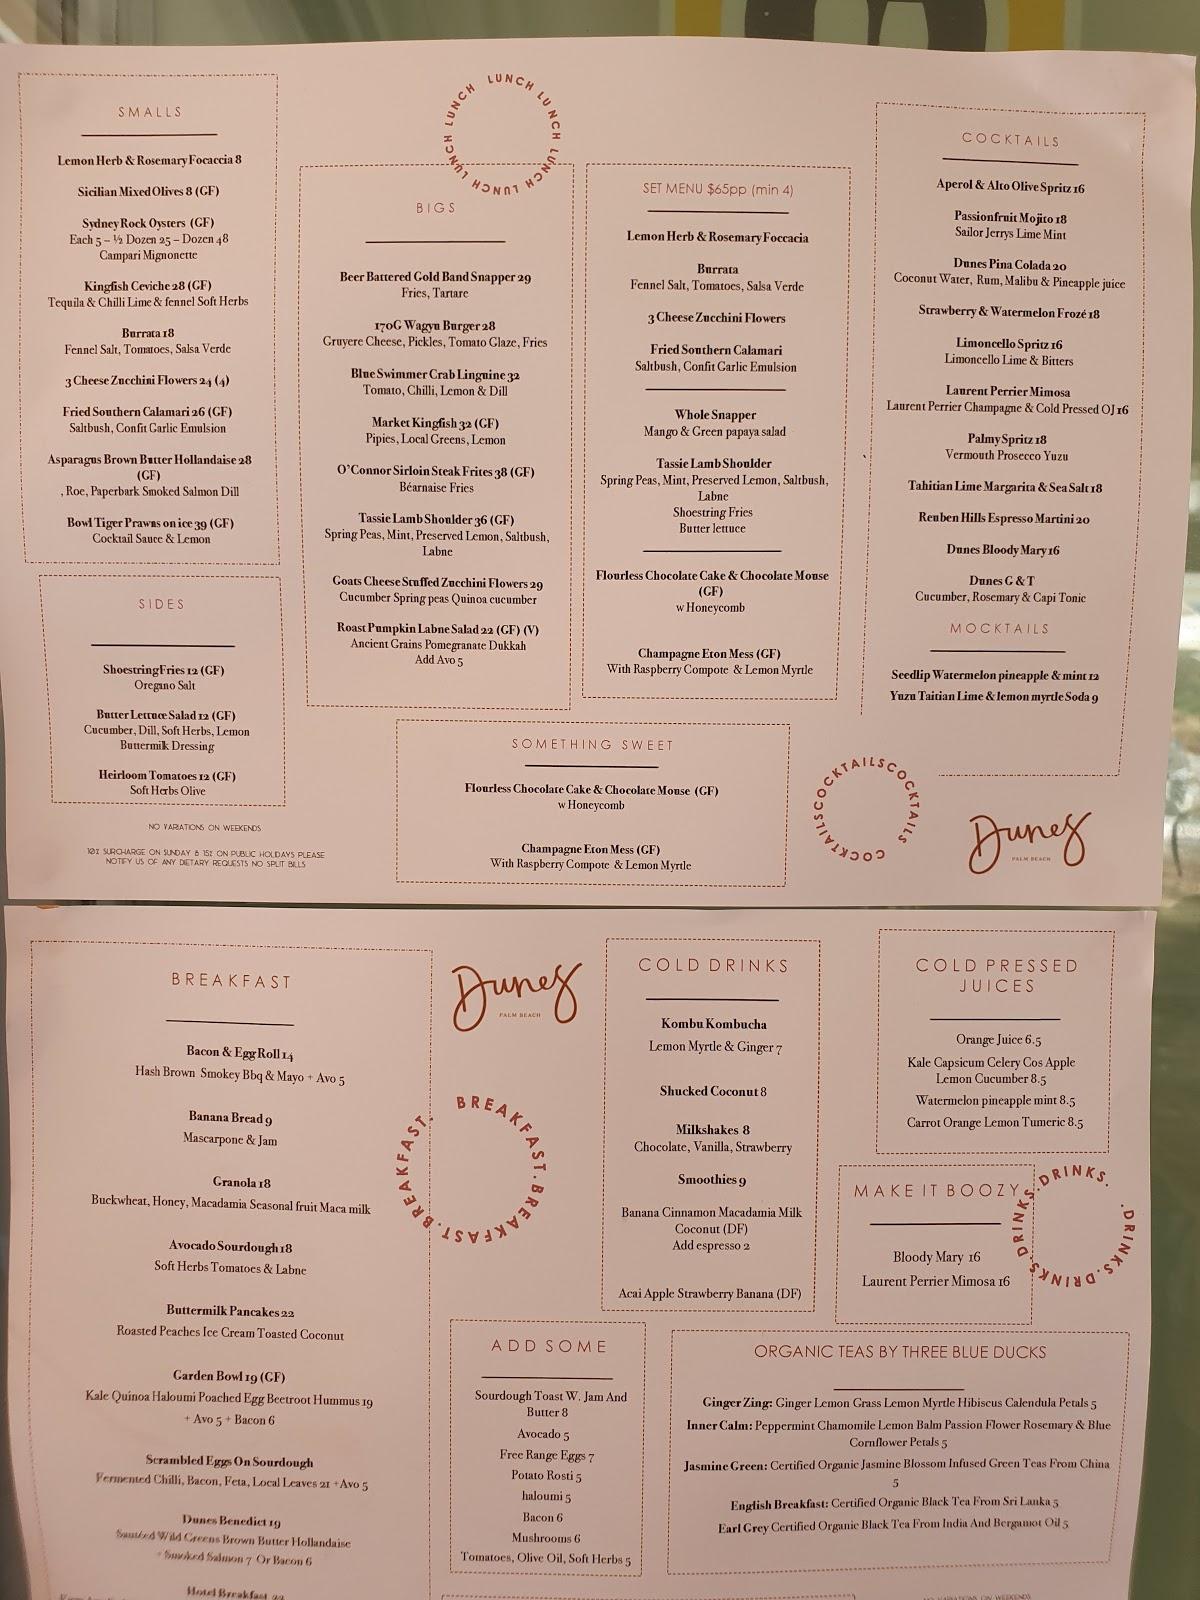 SMALLS
Lemon Herb & Rosemary Focaccia 8
Sicilian Mixed Olives 8 (GF)
Sydney Rock Oysters (GF)
Each 5 – ½ Dozen 25 – Dozen 48
Campari Mignonette
Kingfish Ceviche 28 (GF)
Tequila & Chilli Lime & fennel Soft Herbs
Burrata 18
Fennel Salt, Tomatoes, Salsa Verde
3 Cheese Zucchini Flowers 24 (4)
Fried Southern Calamari 26 (GF)
Saltbush, Confit Garlic Emulsion
Asparagus Brown Butter Hollandaise 28
(GF)
, Roe, Paperbark Smoked Salmon Dill
Bowl Tiger Prawns on ice 39 (GF)
Cocktail Sauce & Lemon
SIDES
Shoestring Fries 12 (GF)
Oregano Salt
Butter Lettuce Salad 12 (GF)
Cucumber, Dill, Soft Herbs, Lemon
Buttermilk Dressing
Heirloom Tomatoes 12 (GF)
Soft Herbs Olive
NO VARIATIONS ON WEEKENDS
10% SURCHARGE ON SUNDAY & 15% ON PUBLIC HOLIDAYS PLEASE
NOTIFY US OF ANY DIETARY REQUESTS NO SPLIT BILLS
LUNCH LUNCH LUNCH LUNCH LUNCH LUNCH LUNCH
BIGS
Beer Battered Gold Band Snapper 29
Fries, Tartare
170G Wagyu Burger 28
Gruyere Cheese, Pickles, Tomato Glaze, Fries
Blue Swimmer Crab Linguine 32
Tomato, Chilli, Lemon & Dill
Market Kingfish 32 (GF)
Pipies, Local Greens, Lemon
O'Connor Sirloin Steak Frites 38 (GF)
Béarnaise Fries
Tassie Lamb Shoulder 36 (GF)
Spring Peas, Mint, Preserved Lemon, Saltbush,
Labne
Goats Cheese Stuffed Zucchini Flowers 29
Cucumber Spring peas Quinoa cucumber
Roast Pumpkin Labne Salad 22 (GF) (V)
Ancient Grains Pomegranate Dukkah
Add Avo 5
SET MENU $65pp (min 4)
Lemon Herb & Rosemary Foccacia
Burrata
Fennel Salt, Tomatoes, Salsa Verde
3 Cheese Zucchini Flowers
Fried Southern Calamari
Saltbush, Confit Garlic Emulsion
Whole Snapper
Mango & Green papaya salad
Tassie Lamb Shoulder
Spring Peas, Mint, Preserved Lemon, Saltbush,
Labne
Shoestring Fries
Butter lettuce
Flourless Chocolate Cake & Chocolate Mouse
(GF)
w Honeycomb
Champagne Eton Mess (GF)
With Raspberry Compote & Lemon Myrtle
SOMETHING SWEET
Flourless Chocolate Cake & Chocolate Mouse (GF)
w Honeycomb
Champagne Eton Mess (GF)
With Raspberry Compote & Lemon Myrtle
COCKTAILS
Aperol & Alto Olive Spritz 16
Passionfruit Mojito 18
Sailor Jerrys Lime Mint
Dunes Pina Colada 20
Coconut Water, Rum, Malibu & Pineapple juice
Strawberry & Watermelon Frozé 18
Limoncello Spritz 16
Limoncello Lime & Bitters
Laurent Perrier Mimosa
Laurent Perrier Champagne & Cold Pressed OJ 16
Palmy Spritz 18
Vermouth Prosecco Yuzu
Tahitian Lime Margarita & Sea Salt 18
Reuben Hills Espresso Martini 20
Dunes Bloody Mary 16
Dunes G & T
Cucumber, Rosemary & Capi Tonic
MOCKTAILS
Seedlip Watermelon pineapple & mint 12
Yuzu Taitian Lime & lemon myrtle Soda 9
COCKTAILSCOCKTAILSCOCKTAILS
Dunes
PALM BEACH
BREAKFAST
Bacon & Egg Roll 14
Hash Brown Smokey Bbq & Mayo + Avo 5
Banana Bread 9
Mascarpone & Jam
Granola 18
Buckwheat, Honey, Macadamia Seasonal fruit Maca milk
Avocado Sourdough 18
Soft Herbs Tomatoes & Labne
Buttermilk Pancakes 22
Roasted Peaches Ice Cream Toasted Coconut
Garden Bowl 19 (GF)
Kale Quinoa Haloumi Poached Egg Beetroot Hummus 19
+ Avo 5 + Bacon 6
Scrambled Eggs On Sourdough
Fermented Chilli, Bacon, Feta, Local Leaves 21 +Avo 5
Dunes Benedict 19
Sautéed Wild Greens Brown Butter Hollandaise
+ Smoked Salmon 7 Or Bacon 6
Hotel Breakfast
Dunes
PALM BEACH
BREAKFAST.BREAKFAST.BREAKFAST.
COLD DRINKS
Kombu Kombucha
Lemon Myrtle & Ginger 7
Shucked Coconut 8
Milkshakes 8
Chocolate, Vanilla, Strawberry
Smoothies 9
Banana Cinnamon Macadamia Milk
Coconut (DF)
Add espresso 2
Acai Apple Strawberry Banana (DF)
COLD PRESSED
JUICES
Orange Juice 6.5
Kale Capsicum Celery Cos Apple
Lemon Cucumber 8.5
Watermelon pineapple mint 8.5
Carrot Orange Lemon Tumeric 8.5
MAKE IT BOOZY
Bloody Mary 16
Laurent Perrier Mimosa 16
.DRINKS.DRINKS.DRINKS.DRINKS.
ADD SOME
Sourdough Toast W. Jam And
Butter 8
Avocado 5
Free Range Eggs 7
Potato Rosti 5
haloumi 5
Bacon 6
Mushrooms 6
Tomatoes, Olive Oil, Soft Herbs 5
ORGANIC TEAS BY THREE BLUE DUCKS
Ginger Zing: Ginger Lemon Grass Lemon Myrtle Hibiscus Calendula Petals 5
Inner Calm: Peppermint Chamomile Lemon Balm Passion Flower Rosemary & Blue
Cornflower Petals 5
Jasmine Green: Certified Organic Jasmine Blossom Infused Green Teas From China
5
English Breakfast: Certified Organic Black Tea From Sri Lanka 5
Earl Grey Certified Organic Black Tea From India And Bergamot Oil 5
NO VARIATIONS ON WEEKENDS